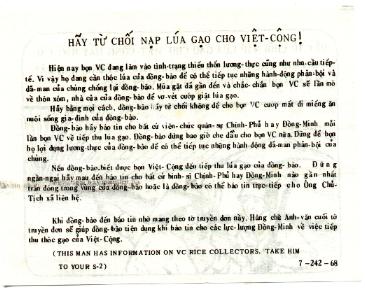 HÃY TỪ CHỐI NẠP LÚA GẠO CHO VIỆT-CỘNG!
Hiện nay bọn VC đang lâm vào tình-trạng thiếu thốn lương-thực cũng như nhu-cầu tiếp-
tế. Vì vậy họ đang cần thóc lúa của đồng-bào để có thể tiếp tục những hành-động phản-bội và
dã-man của chúng chống lại đồng-bào. Mùa gặt đã gần đến và chắc-chắn bọn VC sẽ lần mò
về thôn xóm, nhà cửa của đồng-bào để vơ-vét cướp giật lúa gạo.
Hãy bằng mọi cách, đồng-bào hãy từ chối không để cho bọn VC cướp mất đi miếng ăn
nuôi sống gia-đình của đồng-bào.
Đồng-bào hãy báo tin cho bất cứ viên-chức quân-sự Chính-Phủ hay Đồng-Minh mỗi
lần bọn VC về tiếp thu lúa gạo. Đồng-bào đừng bao giờ che dấu cho bọn VC nữa. Đừng để bọn
họ lợi dụng lương-thực của đồng-bào để có thể tiếp tục những hành động dã-man phản-bội của
chúng.
Nếu đồng-bào biết được bọn Việt-Cộng đến tiếp thu lúa gạo của đồng-bào. Đừng
ngần-ngại hãy mau đến báo tin cho bất cứ binh-sĩ Chính-Phủ hay Đồng-Minh nào gần nhất
trấn đóng trong vùng của đồng-bào hoặc là đồng-bào có thể báo tin trực-tiếp cho Ông Chủ-
Tịch xã liên hệ.
Khi đồng-bào đến báo tin nhớ mang theo tờ truyền đơn này. Hàng chữ Anh-văn cuối tờ
truyền đơn sẽ giúp đồng-bào tiện dụng khi báo tin cho các lực-lượng Đồng-Minh về việc tiếp
thu thóc gạo của Việt-Cộng.
(THIS MAN HAS INFORMATION ON VC RICE COLLECTORS. TAKE HIM
TO YOUR S-2)
7-242-68